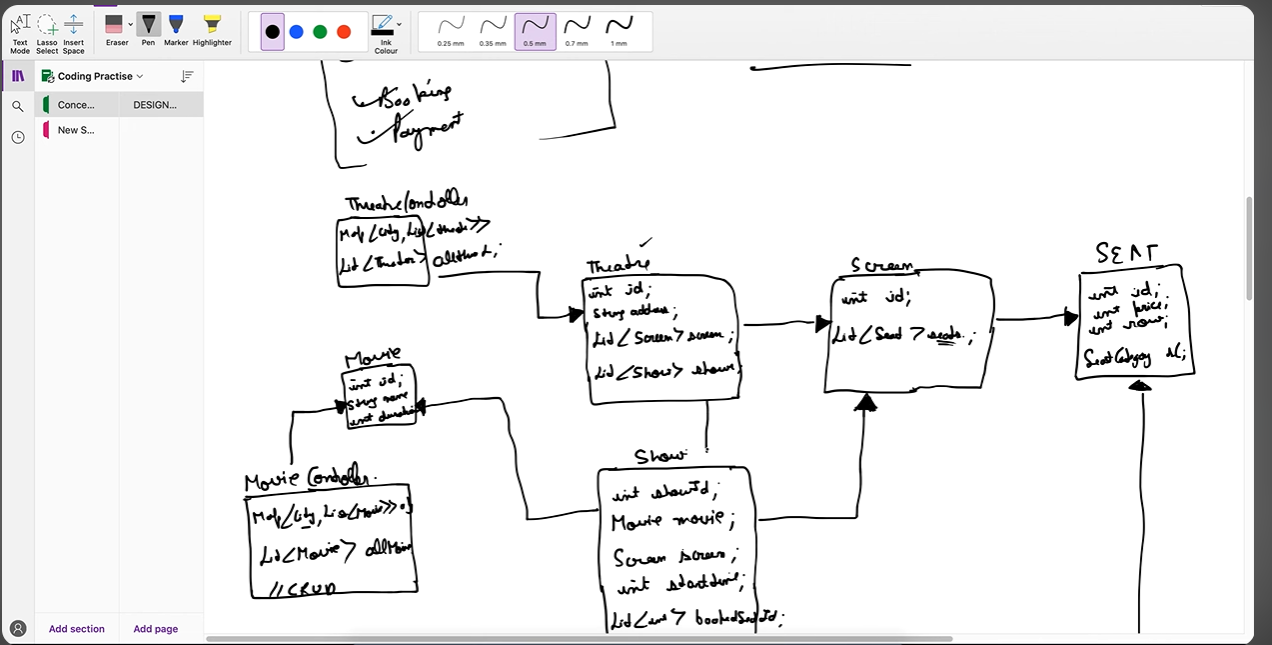 Text Mode
Lasso Select
Insert Space
Eraser
Pen
Marker
Highlighter
Ink Colour
0.25 mm
0.35 mm
0.5 mm
0.7 mm
1 mm
Coding Practise
Conce...
DESIGN...
New S...
Add section
Add page
Booking
Payment
Theatre Controller
Map<City, List<
List<Theatre>
Theatre
int id;
String address;
List<Screen> screen;
List<Show> shows;
Screen
int id;
List<Seat> seats;
SEAT
int id;
int price;
int row;
SeatCategory
Movie
int id;
String name
int duration
Movie Controller
Map<City, List<Movie>>
List<Movie> allMovie
//CRUD
Show
int showId;
Movie movie;
Screen screen;
int startTime;
List<int> bookedSeatId;